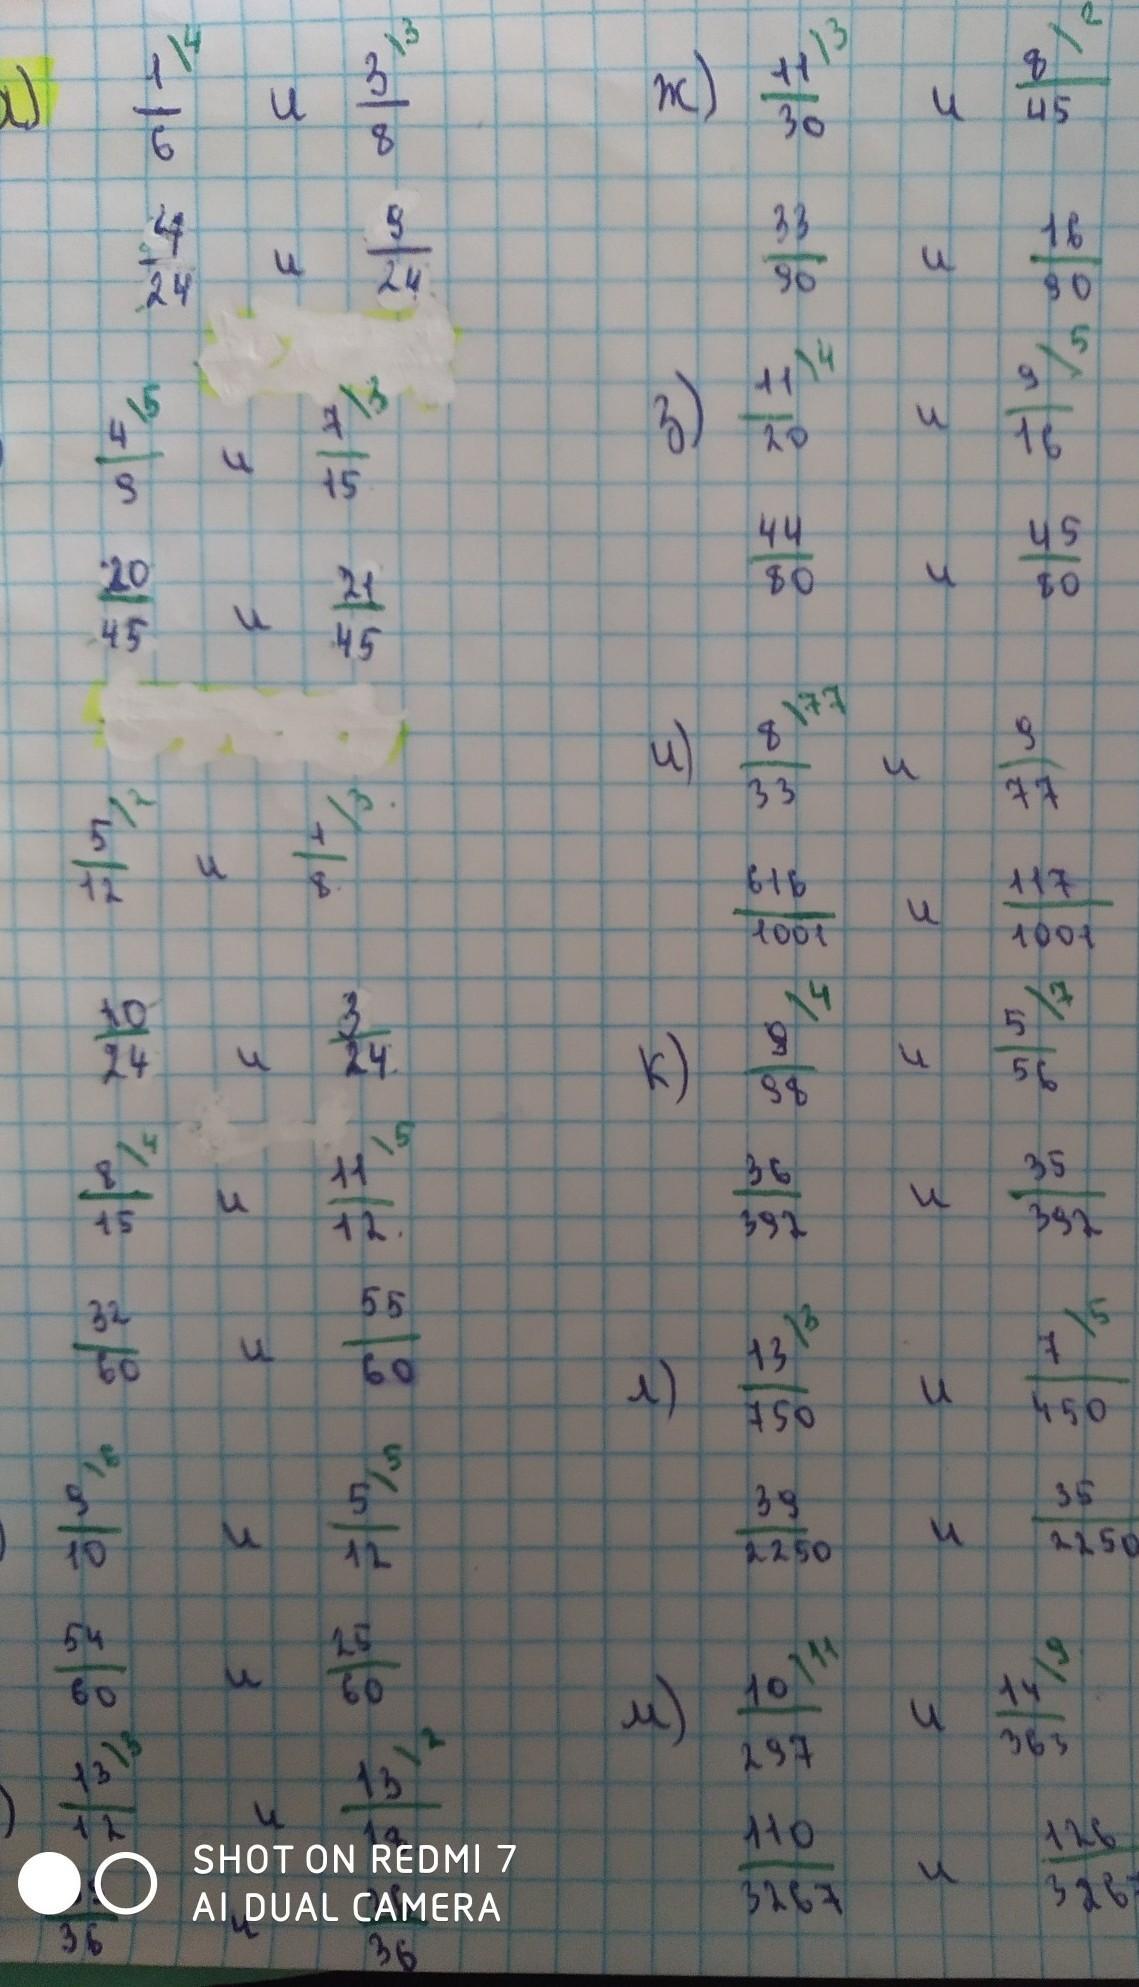 а) 1\4/6 и 3\3/8
4/24 и 9/24
4\5/9 и 7\3/15
20/45 и 21/45
5\2/12 и 1\3/8
10/24 и 3/24
8\4/15 и 11\5/12
32/60 и 55/60
9\6/10 и 5\5/12
54/60 и 25/60
13\3/12 и 13\2/18
/36 и /36
ж) 11\3/30 и 8\2/45
33/90 и 16/90
з) 11\4/20 и 9\5/16
44/80 и 45/80
и) 8\77/33 и 9/77
616/1001 и 117/1001
к) 9\4/98 и 5\7/56
36/392 и 35/392
л) 13\3/750 и 7\5/450
39/2250 и 35/2250
м) 10\11/297 и 14\9/363
110/3267 и 126/3267
SHOT ON REDMI 7
AI DUAL CAMERA